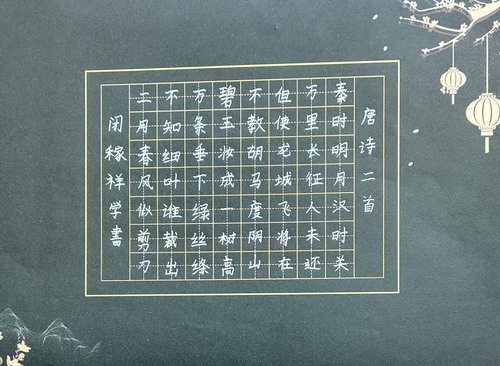 唐诗二首
秦时明月汉时关
万里长征人未还
但使龙城飞将在
不教胡马度阴山
碧玉妆成一树高
万条垂下绿丝绦
不知细叶谁裁出
二月春风似剪刀
闭稼祥学書